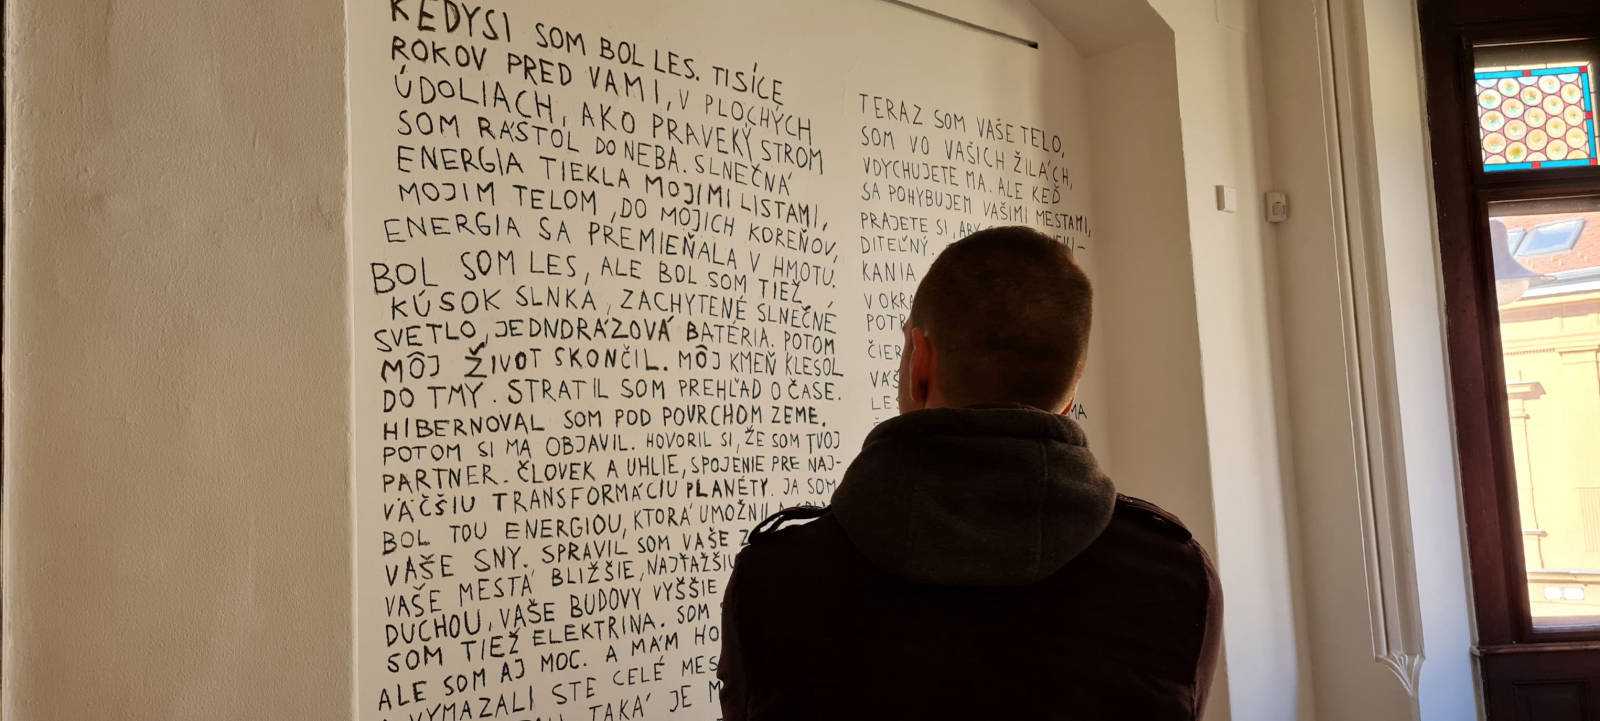 KEDYSI SOM BOL LES. TISÍCE
ROKOV PRED VAMI, V PLOCHÝCH
ÚDOLIACH, AKO PRAVEKÝ STROM
SOM RÁSTOL DO NEBA. SLNEČNÁ
ENERGIA TIEKLA MOJIMI LISTAMI,
MOJIM TELOM, DO MOJICH KOREŇOV,
ENERGIA SA PREMIEŇALA V HMOTU.
BOL SOM LES, ALE BOL SOM TIEŽ
KÚSOK SLNKA, ZACHYTENÉ SLNEČNÉ
SVETLO, JEDNDRÁZOVÁ BATÉRIA. POTOM
MÔJ ŽIVOT SKONČIL. MÔJ KMEŇ KLESOL
DO TMY. STRATIL SOM PREHĽAD O ČASE.
HIBERNOVAL SOM POD POVRCHOM ZEME.
POTOM SI MA OBJAVIL. HOVORIL SI, ŽE SOM TVOJ
PARTNER. ČLOVEK A UHLIE, SPOJENIE PRE NAJ-
VÄČŠIU TRANSFORMÁCIU PLANÉTY. JA SOM
BOL TOU ENERGIOU, KTORÁ UMOŽNILA
VAŠE SNY. SPRAVIL SOM VAŠE
VAŠE MESTÁ BLIŽŠIE, NAJŤAŽŠIU
DUCHOU, VAŠE BUDOVY VYŠŠIE
SOM TIEŽ ELEKTRINA. SOM
ALE SOM AJ MOC. A MÁM
VYMAZALI STE CELÉ
TAKÁ JE
TERAZ SOM VAŠE TELO,
SOM VO VAŠICH ŽILÁCH,
VDYCHUJETE MA. ALE KEĎ
SA POHYBUJEM VAŠIMI MESTAMI,
PRAJETE SI, ABY
DITEĽNÝ.
KANIA